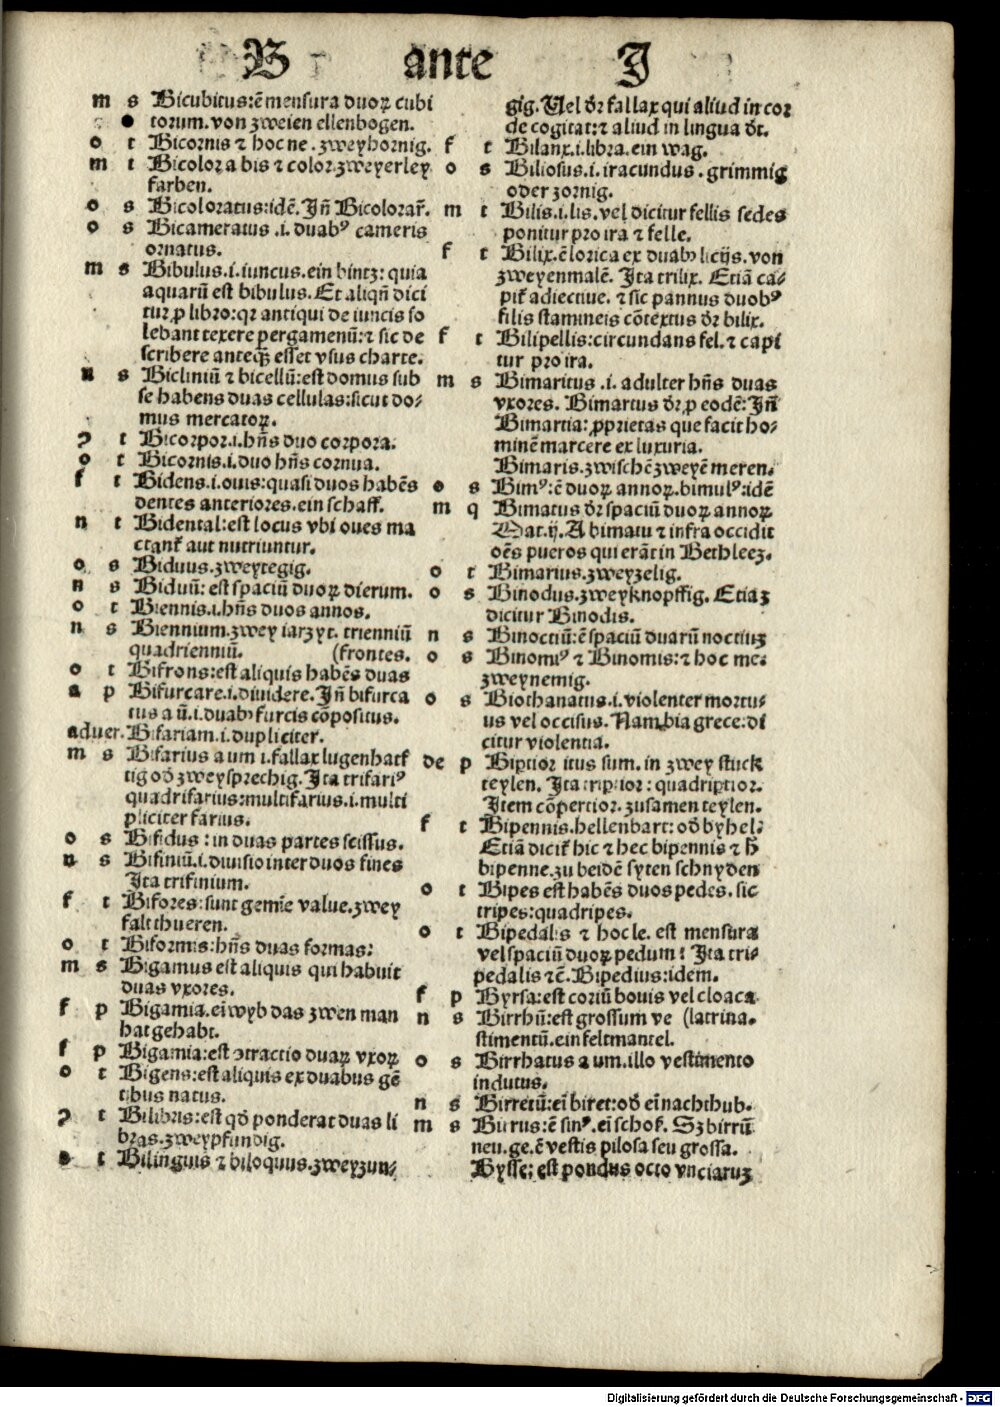 B ante J
m s Bicubitus:ē mensura duoꝝ cubi
torum.von zweien ellenbogen.
o t Bicornis ⁊ hoc ne.zweyhornig.
m t Bicolor a bis ⁊ color.zweyerley
farben.
o s Bicoloratus:idē. Jñ Bicolorar̄.
o s Bicameratus .i. duabꝰ cameris
ornatus.
m s Bibulus.i.iuncus.ein bintz: quia
aquarū est bibulus. Et aliqñ dici
tur ꝓ libro:qꝛ antiqui de iuncis so
lebant texere pergamenū:⁊ sic de
scribere anteqꝫ esset vsus charte.
n s Bicliniū ⁊ bicellū:est domus sub
se habens duas cellulas:sicut do⸗
mus mercatoꝝ.
ꝯ t Bicorpor.i.hñs duo corpora.
o t Bicornis.i.duo hñs cornua.
f t Bidens.i.ouis:quasi duos habēs
dentes anteriores.ein schaff.
n t Bidental:est locus vbi oues ma
ctant̄ aut nutriuntur.
o s Biduus.zweytegig.
n s Biduū: est spaciū duoꝝ dierum.
o t Biennis.i.hñs duos annos.
n s Biennium.zwey iarzyt. trienniū
quadrienniū. (frontes.
o t Bifrons:est aliquis habēs duas
a p Bifurcare.i.diuidere.Jñ bifurca
tus a ū.i.duabꝰ furcis cōpositus.
aduer. Bifariam.i.dupliciter.
m s Bifarius a um i.fallax lugenhatf
tig od̄ zweysprechig. Jta trifariꝰ
quadrifarius:multifarius.i.multi
pliciter farius.
o s Bifidus : in duas partes scissus.
n s Bifiniū.i.diuisio inter duos fines
Jta trifinium.
f t Bifores: sunt gemīe value.zwey
falt thueren.
o t Biformis:hñs duas formas:
m s Bigamus est aliquis qui habuit
duas vxores.
f p Bigamia.ei wyb das zwen man
hat gehabt.
f p Bigamia:est ꝯtractio duaꝝ vxoꝝ
o t Bigens:est aliquis ex duabus gē
tibus natus.
ꝯ t Bilibris:est qd̄ ponderat duas li
bras.zweypfundig.
o t Bilinguis ⁊ biloquus.zweyzun⸗
gig. Uel dr̄ fallax qui aliud in cor
de cogitat:⁊ aliud in lingua dr̄.
f t Bilanx.i.libra.ein wag.
o s Biliosus.i. iracundus .grimmig
oder zornig.
m t Bilis.i.lis.vel dicitur fellis sedes
ponitur pro ira ⁊ felle.
f t Bilix.ē lorica ex duabꝰ licijs.von
zweyenmalē. Jta trilix. Etiā ca⸗
pit̄ adiectiue. ⁊ sic pannus duobꝰ
filis stamineis cōtextus dr̄ bilix.
f t Bilipellis:circundans fel.⁊ capi
tur pro ira.
m s Bimaritus .i. adulter hñs duas
vxores. Bimartus dr̄ ꝓ eodē:Jñ
Bimartia: ꝓprietas que facit ho⸗
minē marcere ex luxuria.
Bimaris.zwischē zweyē meren.
o s Bimꝰ:ē duoꝝ annoꝝ.bimulꝰ:idē
m q Bimatus dr̄ spaciū duoꝝ annoꝝ
Mat.ij. A bimatu ⁊ infra occidit
oēs pueros qui erāt in Bethleeꝫ.
o t Bimarius.zweyzelig.
o s Binodus.zweyknopffig. Etiaꝫ
dicitur Binodis.
n s Binoctiū:ē spaciū duarū noctiuꝫ
o s Binomiꝰ ⁊ Binomis:⁊ hoc me:
zweynemig.
o s Biothanatus.i.violenter mortu⸗
us vel occisus. Nam bia grece:di
citur violentia.
de p Biꝑtior itus sum. in zwey stuck
teylen. Jta triꝑtior : quadriꝑtior.
Jtem cōpertior. zusamen teylen.
f t Bipennis.hellenbart: od̄ byhel:
Etiā dicit̄ hic ⁊ hec bipennis ⁊ h̄
bipenne.zu beidē syten schnyden
o t Bipes est habēs duos pedes. sic
tripes:quadripes.
o t Bipedalis ⁊ hoc le. est mensura
vel spaciū duoꝝ pedum : Jta tri⸗
pedalis ⁊c̄. Bipedius:idem.
f p Byrsa:est coriū bouis vel cloaca
n s Birrhū:est grossum ve (latrina.
stimentū.ein feltmantel.
o s Birrhatus a um.illo vestimento
indutus.
n s Birretū:eī biret:od̄ eī nachthub.
m s Burus:ē sinꝰ.eī schof. Sꝫ birrū
neu.ge.ē vestis pilosa seu grossa.
Bysse: est pondus octo vnciaruꝫ
Digitalisierung gefördert durch die Deutsche Forschungsgemeinschaft - DFG